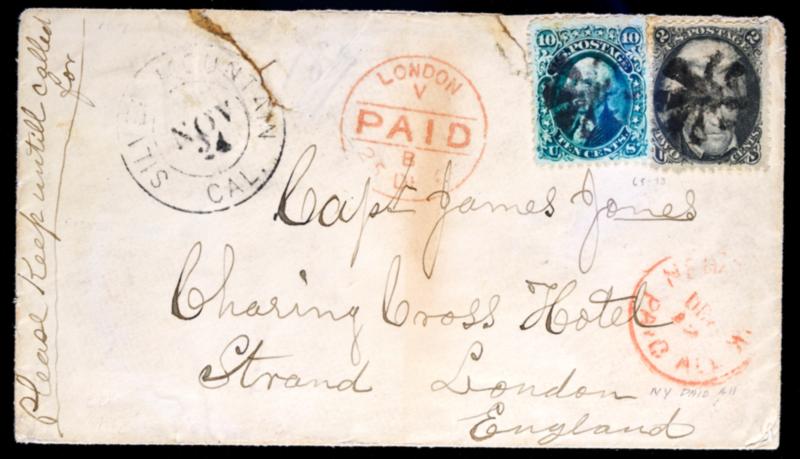 Please Keep untill called
for
SILVER MOUNTAIN
NOV
24
CAL.
LONDON
V
PAID
B
10 10
U.S. POSTAGE
TEN CENTS
U S
2 2
U.S. POSTAGE
CENTS
65-73
Capt James Jones
Charing Cross Hotel
Strand London
England
NEW
DEC
PAID ALL
NY PAID All